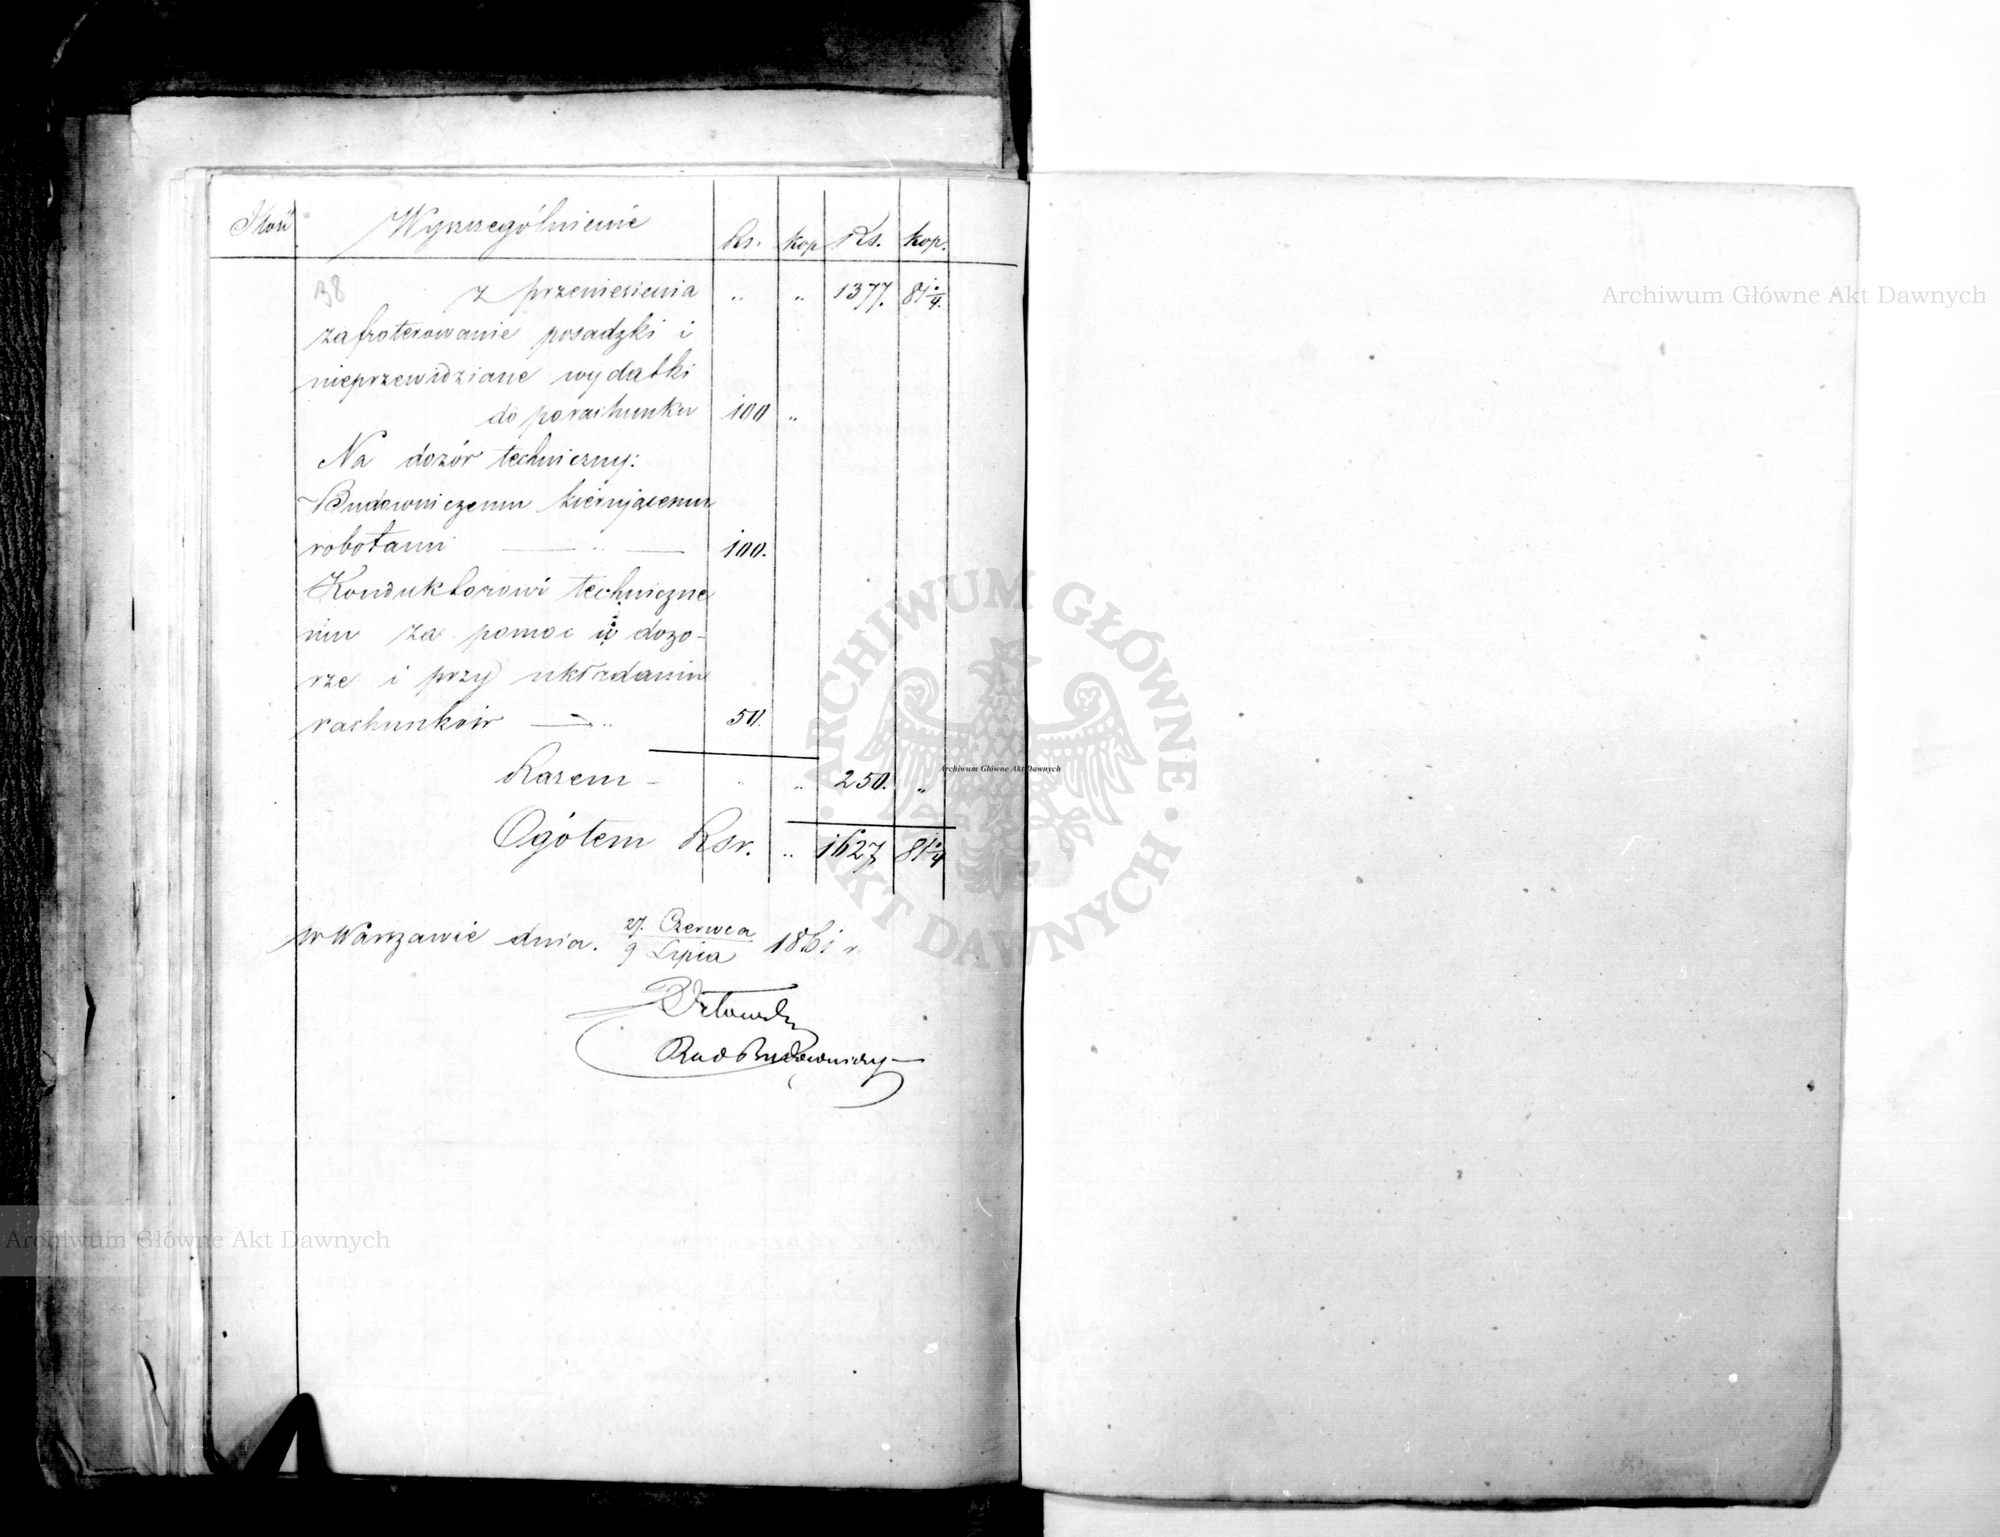 Ilość Wyszczególnienie Rs. kop Rs. kop.
38 z przeniesienia „ „ 1377. 81 1/4.
zafroterowanie posadzki i
nieprzewidziane wydatki
do porachunku 100 „
Na dozór techniczny:
Budowniczemu kierującemu
robotami — „ — 100.
Konduktorowi techniczne
mu za pomoc w dozo-
rze i przy układaniu
rachunków — „ 50.
Razem — „ „ 250. „
Ogółem Rsr. „ 1627 81 1/4
w Warszawie dnia. 27. Czerwca / 9 Lipia 1861 r.
Rad Budowniczy
Archiwum Główne Akt Dawnych
Archiwum Główne Akt Dawnych
Archiwum Główne Akt Dawnych
ARCHIWUM GŁÓWNE · AKT DAWNYCH ·